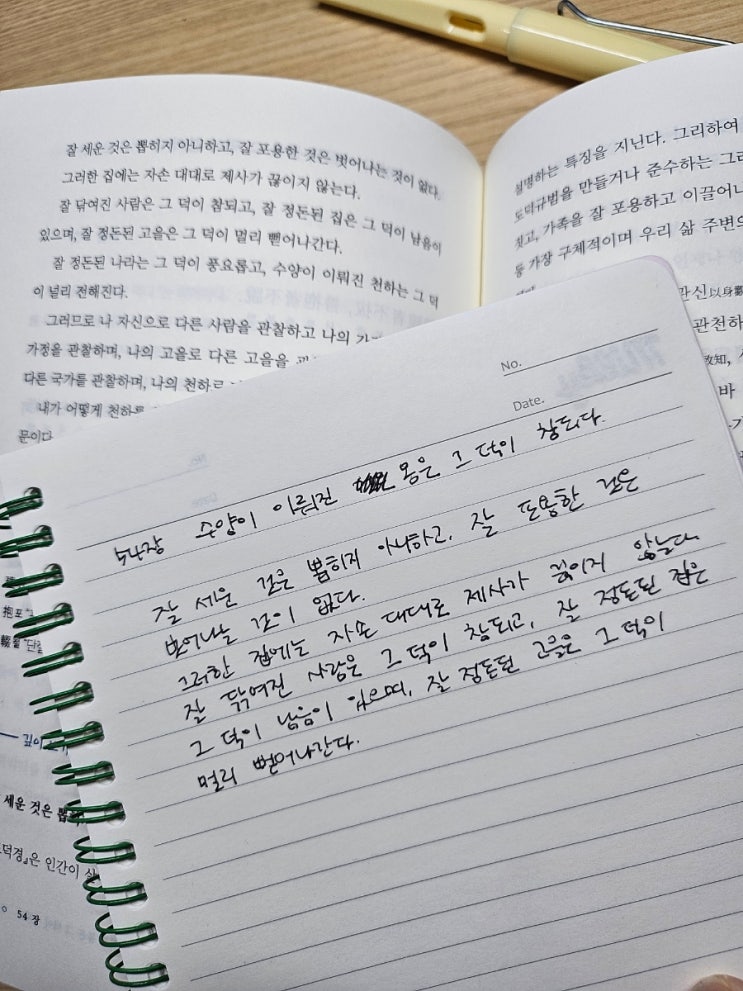 잘 세운 것은 뽑히지 아니하고, 잘 포용한 것은 벗어나는 것이 없다.
그러한 집에는 자손 대대로 제사가 끊이지 않는다.
잘 닦여진 사람은 그 덕이 참되고, 잘 정돈된 집은 그 덕이 남음이
있으며, 잘 정돈된 고을은 그 덕이 멀리 뻗어나간다.
잘 정돈된 나라는 그 덕이 풍요롭고, 수양이 이뤄진 천하는 그 덕
이 널리 전해진다.
그러므로 나 자신으로 다른 사람을 관찰하고 나의
가정을 관찰하며, 나의 고을로 다른 고을을
다른 국가를 관찰하며, 나의 천하로
내가 어떻게 천하를
문이다
설명하는 특징을 지닌다. 그리하여
도덕규범을 만들거나 준수하는
짓고, 가족을 잘 포용하고
등 가장 구체적이며 우리 삶
관신以身
관천하
바
No.
Date.
54장 수양이 이뤄진 몸은 그 덕이 참되다.
잘 세운 것은 뽑히지 아니하고, 잘 포용한 것은
벗어나는 것이 없다.
그러한 집에는 자손 대대로 제사가 끊이지 않는다.
잘 닦여진 사람은 그 덕이 참되고, 잘 정돈된 집은
그 덕이 남음이 있으며, 잘 정돈된 고을은 그 덕이
멀리 뻗어나간다.
세운 것은
덕경』은 인간이
54장